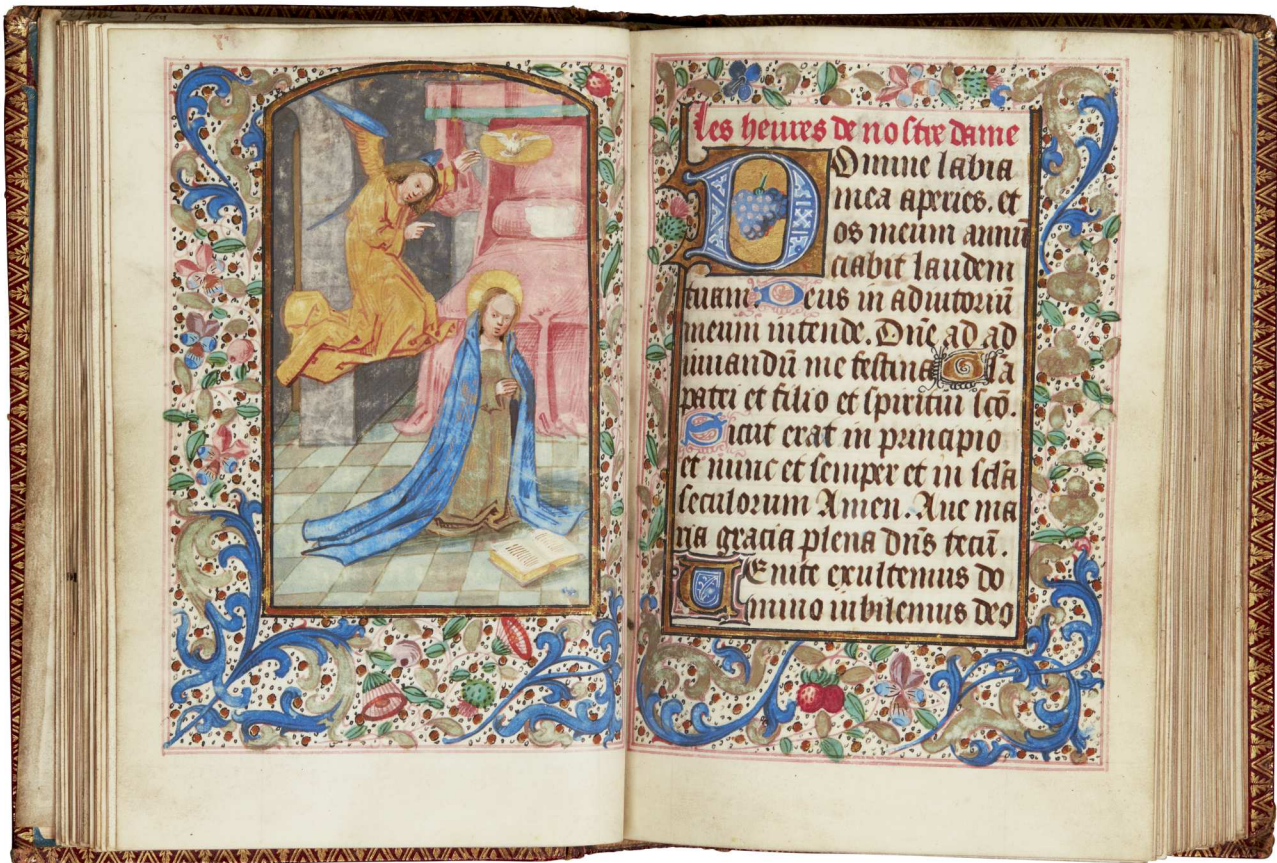 les heures de nostre dame
Domine labia
mea aperies. et
os meum annū
ciabit laudem
tuam. Deus in adiutoriū
meum intende. Dn̄e ad ad
iuuandū me festina Gl̄a
patri et filio et spiritui scō.
Sicut erat in principio
et nunc et semper et in sc̄la
seculorum Amen. Aue ma
ria gracia plena dn̄s tecū.
Uenite exultemus do
mino iubilemus deo